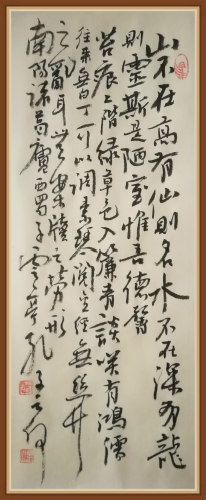 山不在高有仙則名水不在深有龍
則靈斯是陋室惟吾德馨
苔痕上階綠草色入簾青談笑有鴻儒
往来無白丁可以調素琴閱金經無絲竹
之亂耳無案牘之勞形
南陽諸葛廬西蜀子雲亭孔子云何